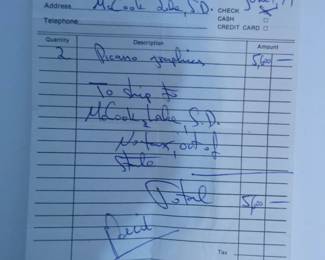 Address McCook Lake, S.D. CHECK
Telephone CASH
CREDIT CARD
Quantity Description Amount
2 Picasso graphics 5,600 —
To ship to
McCook Lake, S.D.
No tax, out of
state
Total 5,600 —
Paid
Tax